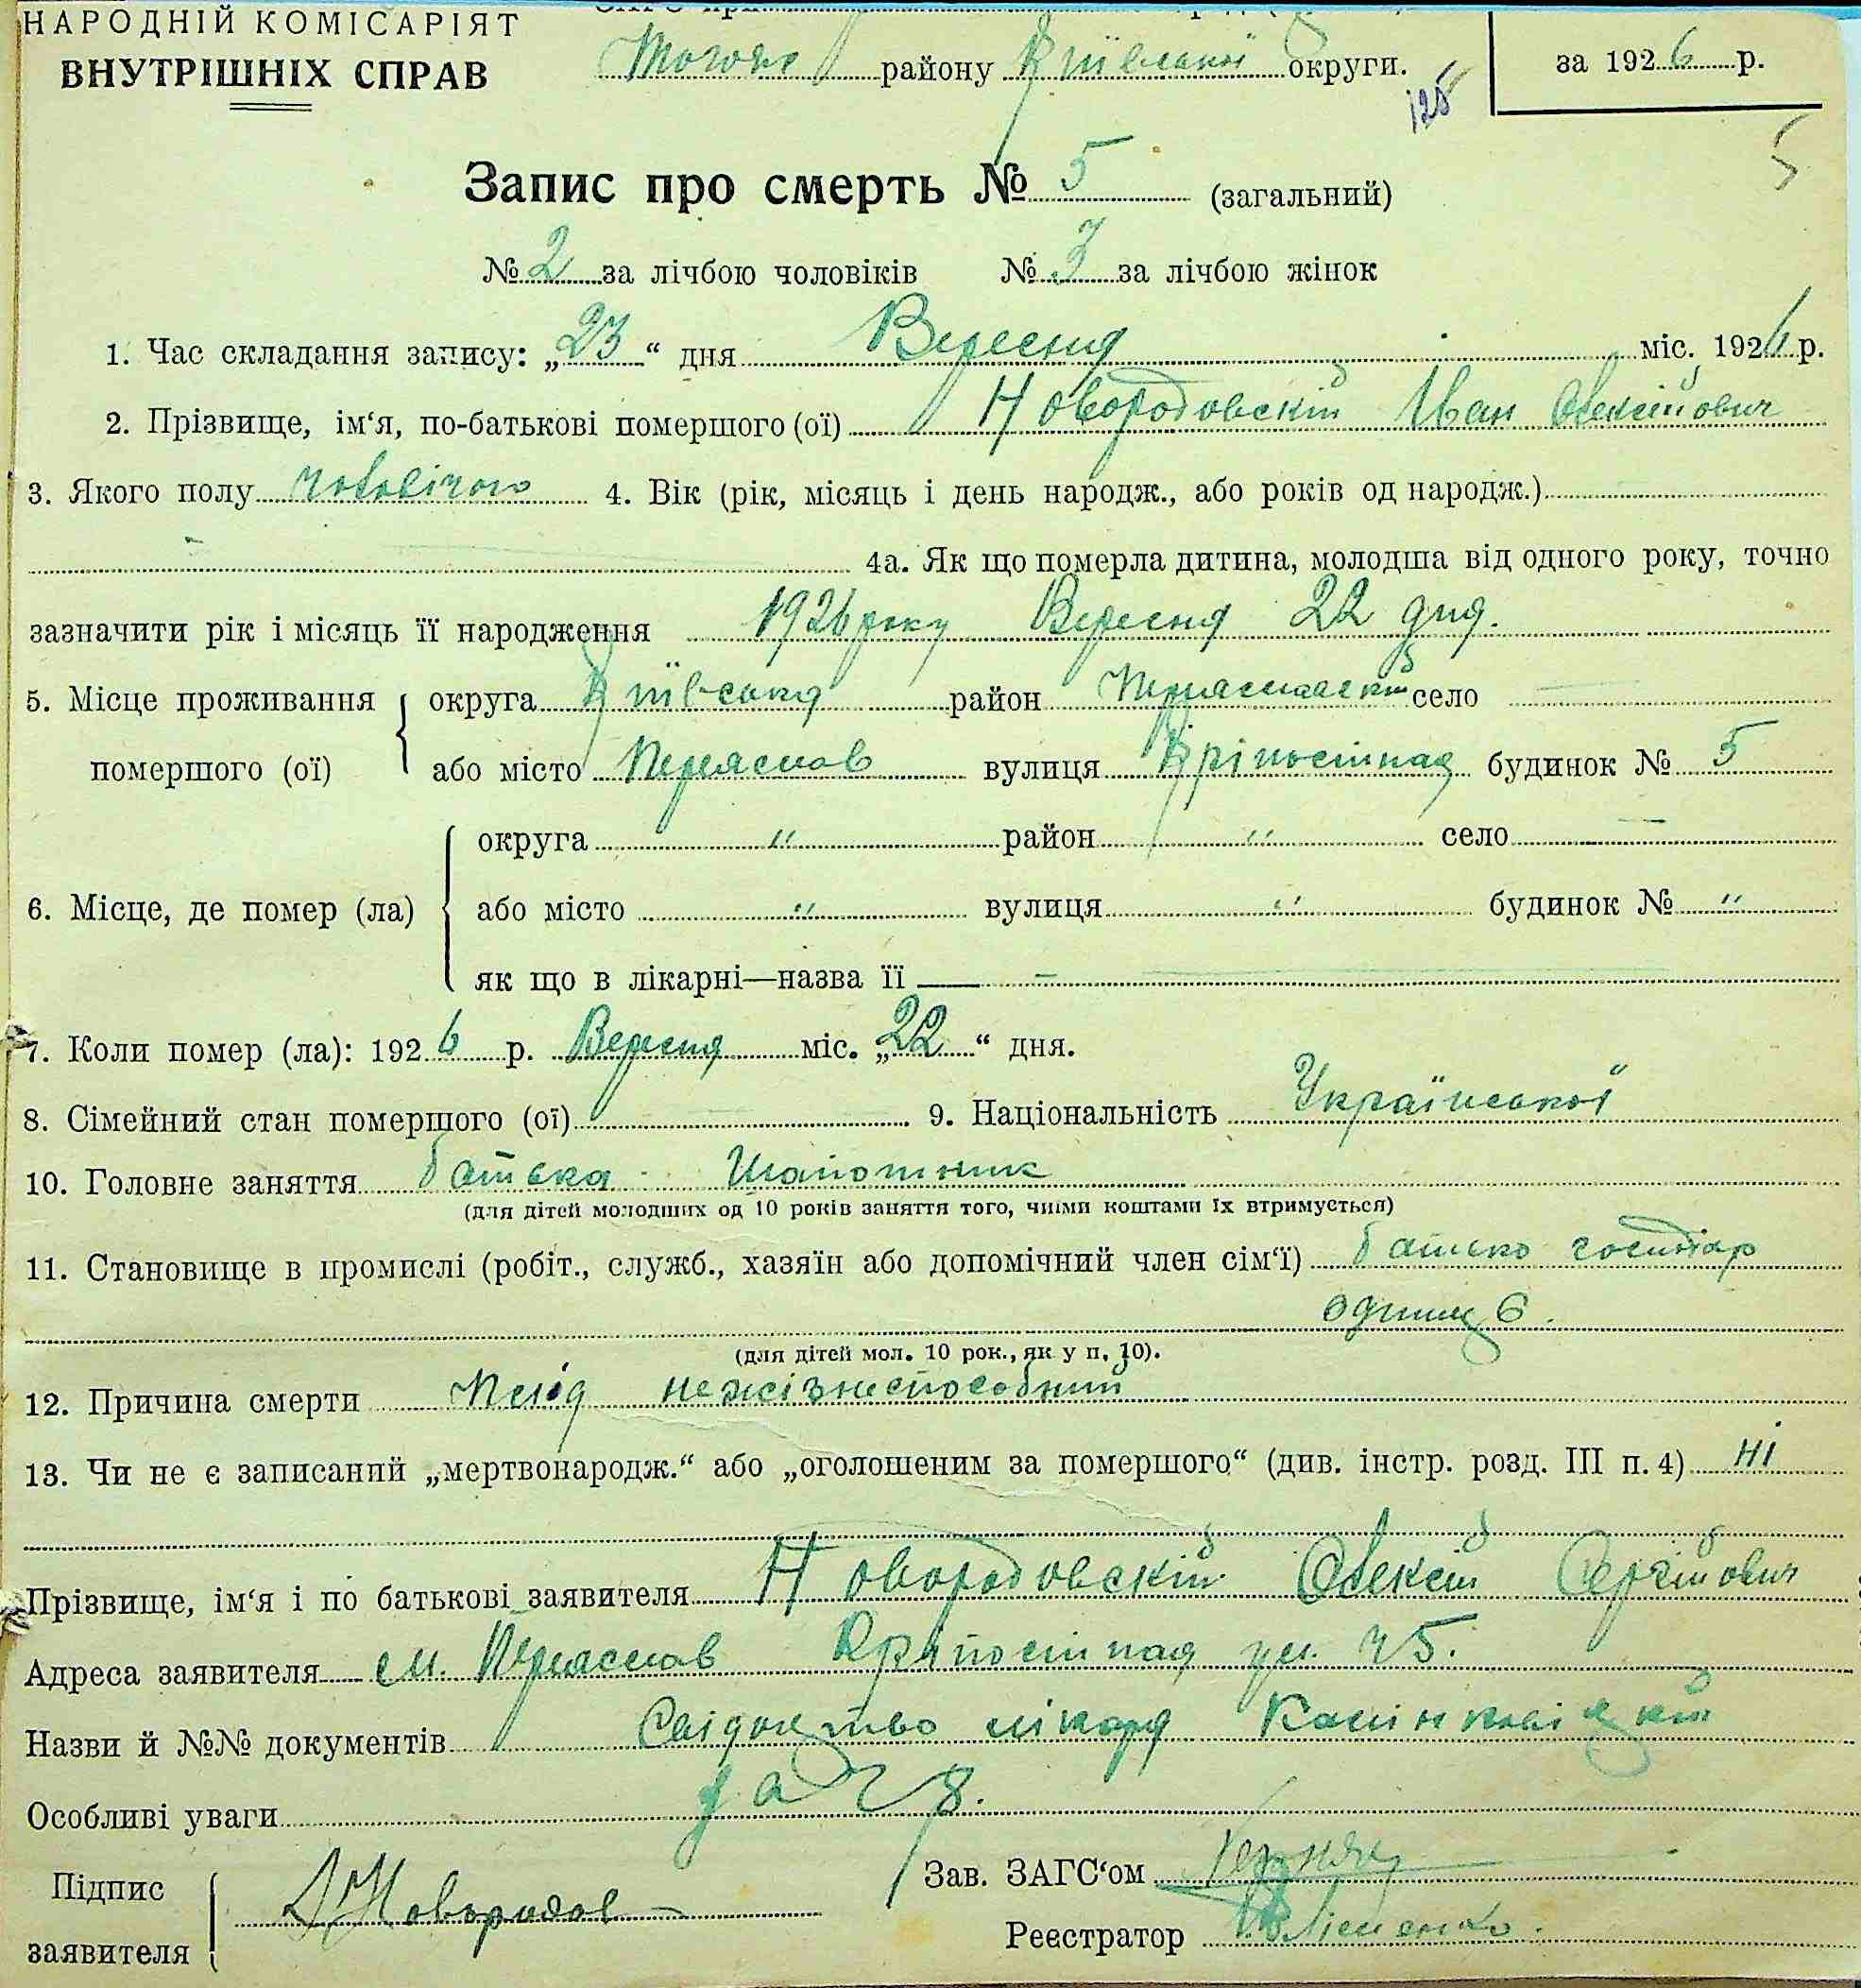 НАРОДНІЙ КОМІСАРІЯТ
ВНУТРІШНІХ СПРАВ
району Київської округи.
за 1926 р.
125
5
Запис про смерть № 5 (загальний)
№ 2 за лічбою чоловіків № 3 за лічбою жінок
1. Час складання запису: „23“ дня Вересня міс. 1926 р.
2. Прізвище, ім‘я, по-батькові помершого (ої) Новородовскій Іван Олексійович
3. Якого полу чоловічого 4. Вік (рік, місяць і день народж., або років од народж.)
4а. Як що померла дитина, молодша від одного року, точно
зазначити рік і місяць її народження 1926 року Вересня 22 дня.
5. Місце проживання помершого (ої) округа Київська район Переяславский село
або місто Переяслав вулиця Кріпостная будинок № 5
6. Місце, де помер (ла) округа " район " село —
або місто " вулиця " будинок № "
як що в лікарні—назва її —
7. Коли помер (ла): 1926 р. Вересня міс. „22“ дня.
8. Сімейний стан помершого (ої) 9. Національність Української
10. Головне заняття батька
(для дітей молодших од 10 років заняття того, чиїми коштами їх втримується)
11. Становище в промислі (робіт., служб., хазяїн або допомічний член сім‘ї) батько господар
(для дітей мол. 10 рок., як у п. 10).
12. Причина смерти Плід нежізнеспособний
13. Чи не є записаний „мертвонародж.“ або „оголошеним за помершого“ (див. інстр. розд. III п. 4) ні
Прізвище, ім‘я і по батькові заявителя Новородовскій Олексій Сергійович
Адреса заявителя м. Переяслав Кріпостная ул. ч 5.
Назви й №№ документів Свідоцтво лікаря
Особливі уваги за ч 8.
Підпис заявителя Новородов
Зав. ЗАГС‘ом
Реєстратор